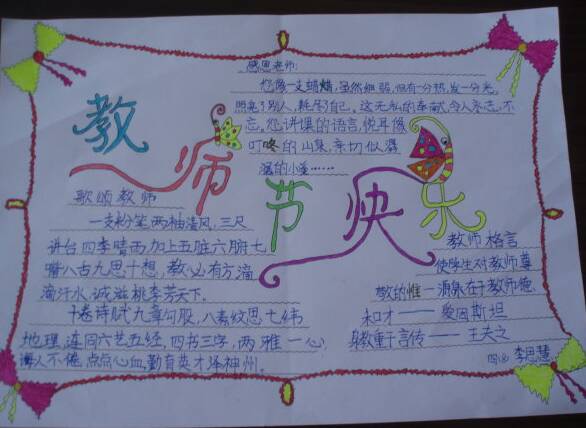 感恩老师:
您像一支蜡烛,虽然细弱,但有一分热,发一分光,
照亮了别人,耗尽了自己。这无私的奉献,令人永志不
忘。您讲课的语言,悦耳像
叮咚的山泉,亲切似潺
潺的小溪……
教师节快乐
歌颂教师
一支粉笔两袖清风,三尺
讲台四季晴雨,加上五脏六腑七
嘴八舌九思十想,教必有方滴
滴汗水,诚滋桃李芳天下。
十卷诗赋九章勾股,八索纹思七纬
地理,连同六艺五经,四书三字,两雅一心,
诲人不倦,点点心血,勤育英才泽神州。
教师格言
使学生对教师尊
敬的惟一源泉在于教师德
和才——爱因斯坦
身教重于言传——王夫之